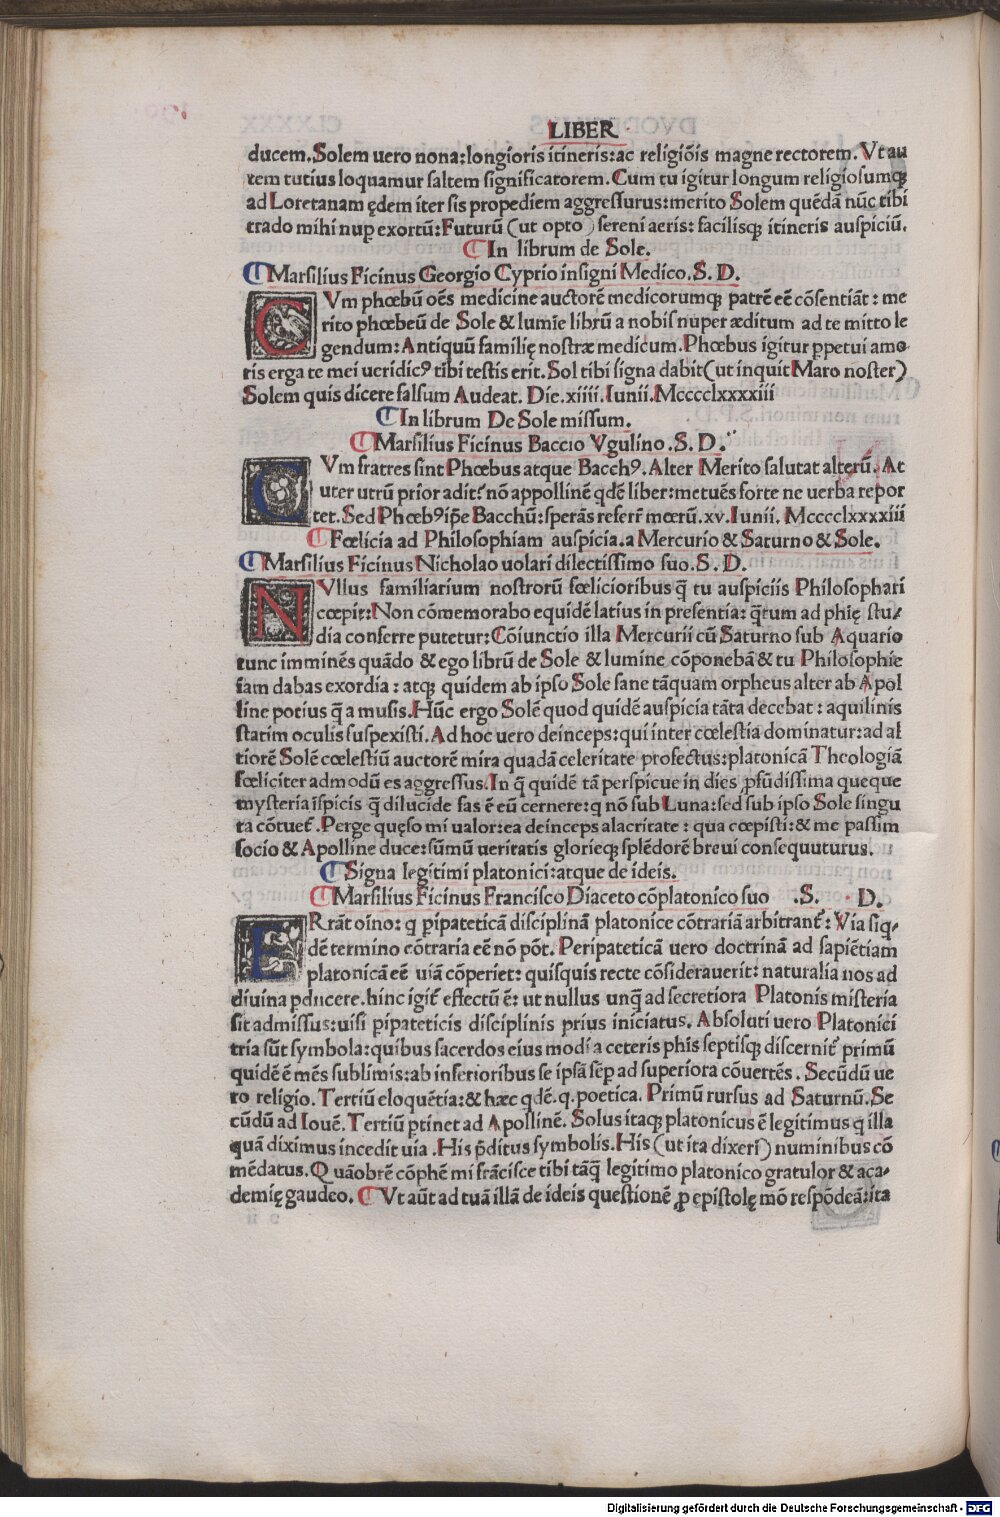 LIBER
ducem. Solem uero nona: longioris itineris: ac religiõis magne rectorem. Vt au
tem tutius loquamur saltem significatorem. Cum tu igitur longum religiosumqꝫ
ad Loretanam ędem iter sis propediem aggressurus: merito Solem quẽdã nũc tibi
trado mihi nuꝑ exortũ: Futurũ (ut opto) sereni aeris: facilisqꝫ itineris auspiciũ.
¶ In librum de Sole.
¶ Marsilius Ficinus Georgio Cyprio insigni Medico. S. D.
CVm phœbũ oẽs medicine auctorẽ medicorumqꝫ patrẽ eẽ cõsentiãt: me
rito phœbeũ de Sole & lumĩe librũ a nobis nuper æditum ad te mitto le
gendum: Antiquũ familię nostræ medicum. Phœbus igitur ꝑpetui amo
ris erga te mei ueridicꝰ tibi testis erit. Sol tibi signa dabit (ut inquit Maro noster)
Solem quis dicere falsum Audeat. Die. xiiii. Iunii. Mcccclxxxxiii
¶ In librum De Sole missum.
¶ Marsilius Ficinus Baccio Vgulino. S. D.
CVm fratres sint Phœbus atque Bacchꝰ. Alter Merito salutat alterũ. At
uter utrũ prior adit? nõ appollinẽ qdẽ liber: metuẽs forte ne uerba repor
tet. Sed Phœbꝰ ip̃e Bacchũ: sperãs referr̃ mœrũ. xv. Iunii. Mcccclxxxxiii
¶ Fœlicia ad Philosophiam auspicia. a Mercurio & Saturno & Sole.
¶ Marsilius Ficinus Nicholao ualori dilectissimo suo. S. D.
NVllus familiarium nostrorũ fœlicioribus q̃ tu auspiciis Philosophari
cœpit: Non cõmemorabo equidẽ latius in presentia: q̃rum ad phię stu-
dia conferre putetur: Cõiunctio illa Mercurii cũ Saturno sub Aquario
tunc imminẽs quãdo & ego librũ de Sole & lumine cõponebã & tu Philosophie
iam dabas exordia: atqꝫ quidem ab ipso Sole sane tãquam orpheus alter ab Apol
line potius q̃ a musis. Hũc ergo Solẽ quod quidẽ auspicia tãta decebat: aquilinis
statim oculis suspexisti. Ad hoc uero deinceps: qui inter cœlestia dominatur: ad al
tiorẽ Solẽ cœlestiũ auctorẽ mira quadã celeritate profectus: platonicã Theologiã
fœliciter admodũ es aggressus. In q̃ quidẽ tã perspicue in dies ꝓfũdissima queque
mysteria ĩspicis q̃ dilucide fas ẽ eũ cernere: q nõ sub Luna: sed sub ipso Sole singu
la cõtuet̃. Perge quęso mi ualor: ea deinceps alacritate: qua cœpisti: & me passim
socio & Apolline duce: sũmũ ueritatis glorięqꝫ splẽdorẽ breui consequuturus.
¶ Signa legitimi platonici: atque de ideis.
¶ Marsilius Ficinus Francisco Diaceto cõplatonico suo .S. D.
ERrãt oĩno: q ꝑipateticã disciplinã platonice cõtrariã arbitrant̃: Via siq-
dẽ termino cõtraria eẽ nõ põt. Peripateticã uero doctrinã ad sapiẽtiam
platonicã eẽ uiã cõperiet: quisquis recte cõsiderauerit: naturalia nos ad
diuina ꝑducere. hinc igit̃ effectũ ẽ: ut nullus unq̃ ad secretiora Platonis misteria
sit admissus: uisi ꝑipateticis disciplinis prius iniciatus. Absoluti uero Platonici
tria sũt symbola: quibus sacerdos eius modi a ceteris phis septisqꝫ discernit̃ primũ
quidẽ ẽ mẽs sublimis: ab inferioribus se ipsã sẽp ad superiora cõuertẽs. Secũdũ ue
ro religio. Tertiũ eloquẽtia: & hæc qdẽ. q. poetica. Primũ rursus ad Saturnũ. Se
cũdũ ad Iouẽ. Tertiũ ꝑtinet ad Apollinẽ. Solus itaqꝫ platonicus ẽ legitimus q illa
quã diximus incedit uia. His p̃ditus symbolis. His (ut ita dixeri) numinibus cõ
mẽdatus. Quãobrẽ cõphẽ mi frãcisce tibi tãq̃ legitimo platonico gratulor & aca-
demię gaudeo. ¶ Vt aũt ad tuã illã de ideis questionẽ ꝓ epistolę mõ respõdeã: ita
Digitalisierung gefördert durch die Deutsche Forschungsgemeinschaft - DFG